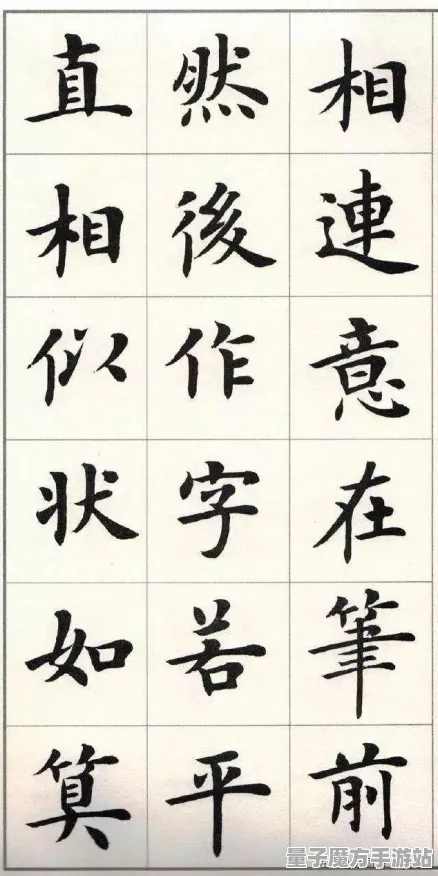 相連意在筆前
然後作字若平
直相似状如筭
量子魔方手游站